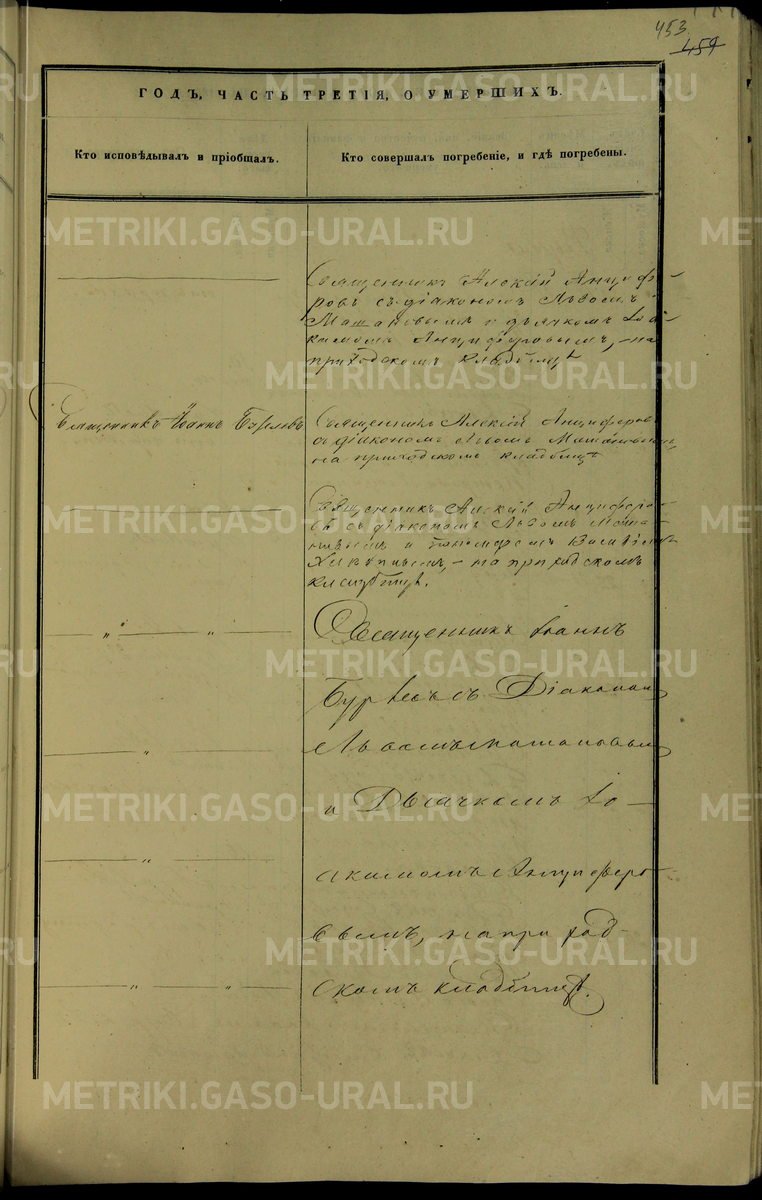 453
459
ГОДЪ, ЧАСТЬ ТРЕТІЯ, О УМЕРШИХЪ.
Кто исповѣдывалъ и пріобщалъ.
Кто совершалъ погребеніе, и гдѣ погребены.
Священникъ Алексій Анцифе-
ровъ съ діакономъ Львомъ
и дьячкомъ Іоа-
кимомъ Анциферовымъ, на
приходскомъ кладбищѣ
Священникъ Іоаннъ
Священникъ Алексій Анциферовъ
съ діакономъ Львомъ
на приходскомъ кладбищѣ
Священникъ Алексій Анциферо-
въ съ діакономъ Львомъ
и пономаремъ
на приходскомъ
кладбищѣ.
Священникъ Іоаннъ
съ Діакономъ
Львомъ
и Дьячкомъ Іо-
акимомъ Анциферо-
вымъ, на приход-
скомъ кладбищѣ.
METRIKI.GASO-URAL.RU